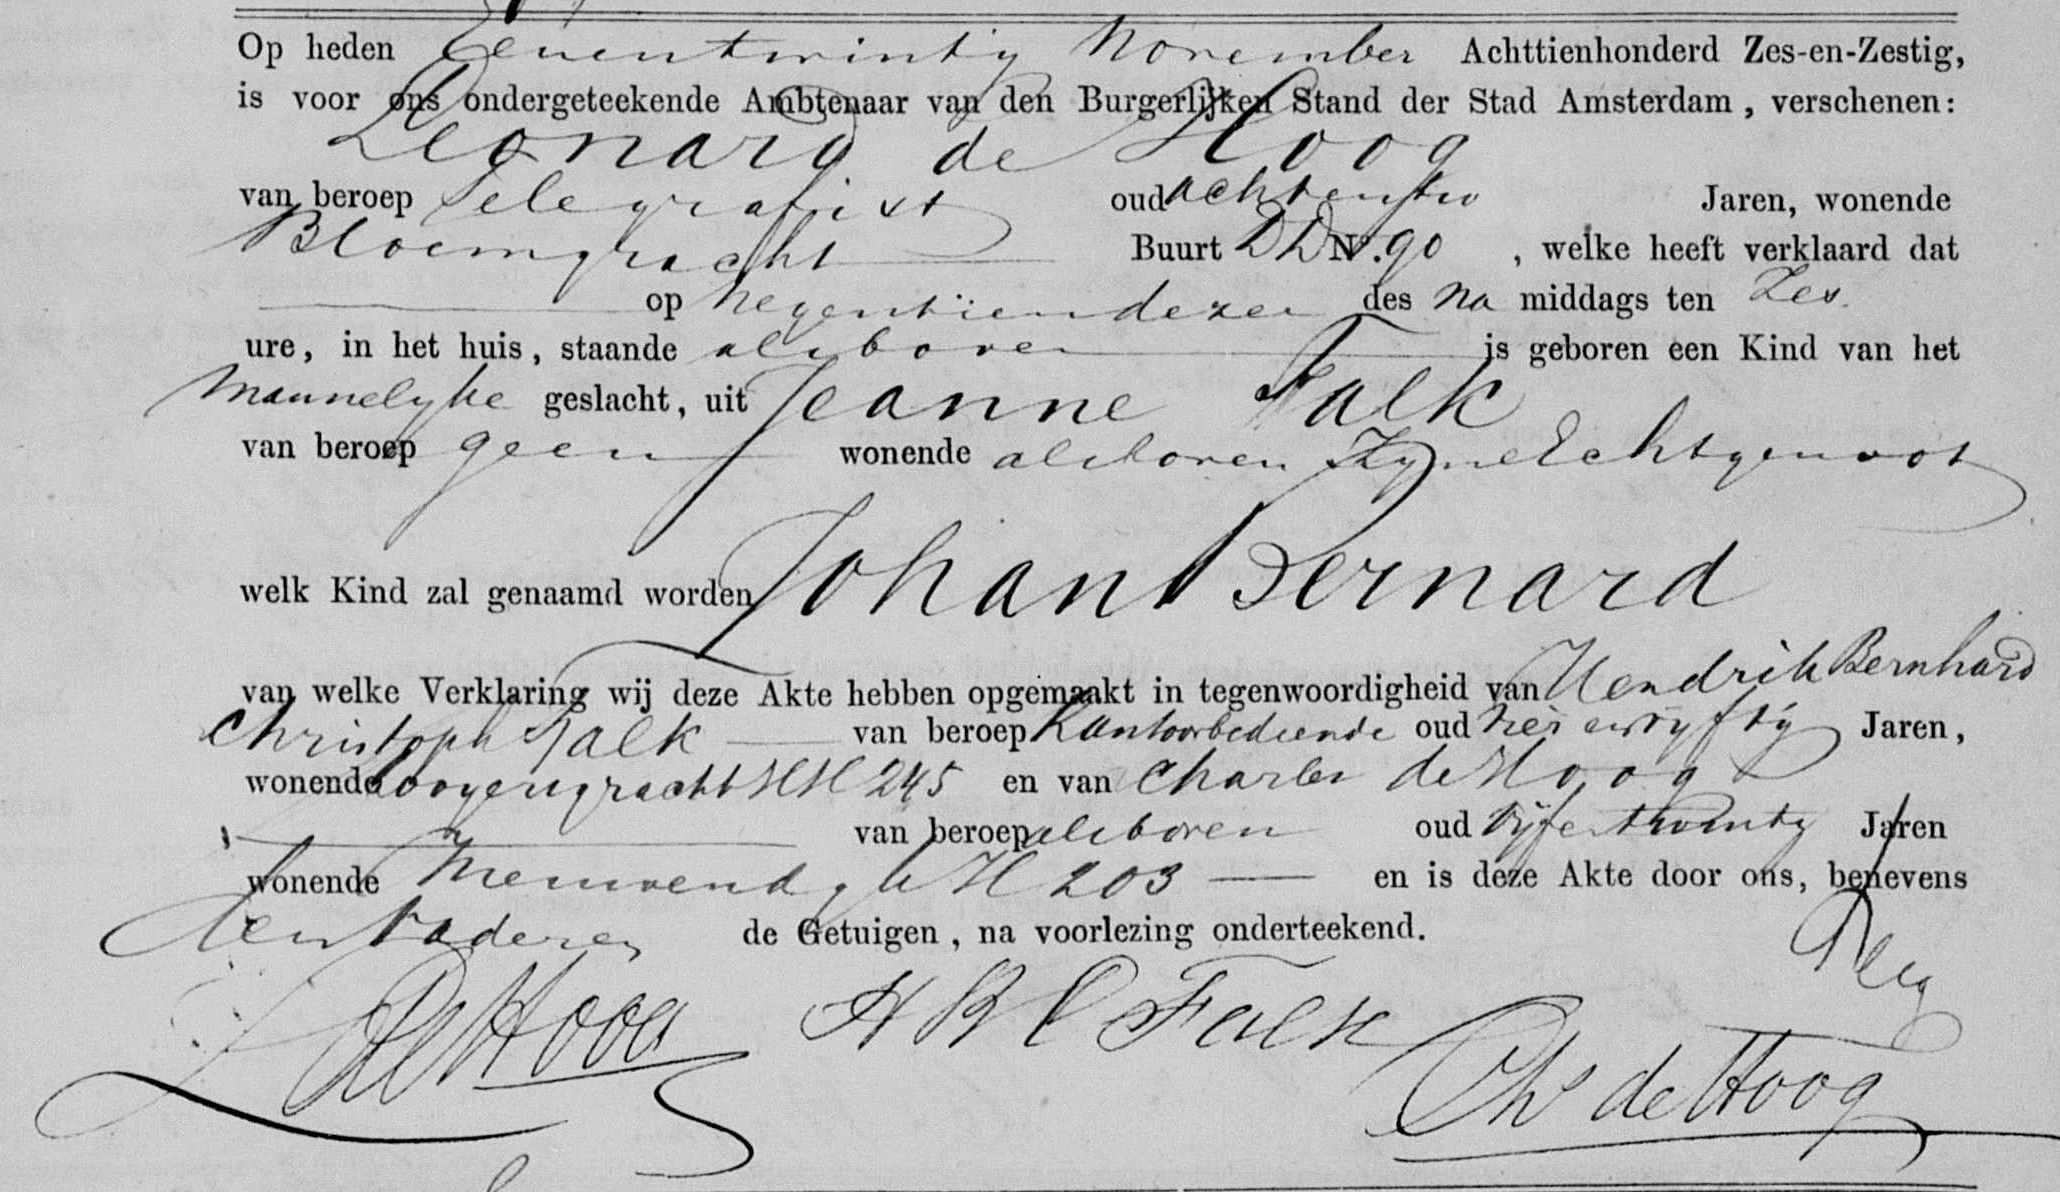 Op heden Eenentwintig November Achttienhonderd Zes-en-Zestig,
is voor ons ondergeteekende Ambtenaar van den Burgerlijken Stand der Stad Amsterdam, verschenen:
Leonard de Hoog
van beroep Telegrafist oud Jaren, wonende
Bloemgracht Buurt DD No. 90, welke heeft verklaard dat
op negentien dezer des na middags ten Zes
ure, in het huis, staande alsboven is geboren een Kind van het
Mannelyke geslacht, uit Jeanne Falk
van beroep geen wonende alsboven Zyne Echtgenoot
welk Kind zal genaamd worden Johan Bernard
van welke Verklaring wij deze Akte hebben opgemaakt in tegenwoordigheid van Hendrik Bernhard
Christoph Falk van beroep Kantoorbediende oud Jaren,
wonende Looyersgracht HH 245 en van Charles de Hoog
van beroep alsboven oud Vyfentwintig Jaren
wonende H 203 en is deze Akte door ons, benevens
den Vader en de Getuigen, na voorlezing onderteekend.
L de Hoog H B C Falk
Chs de Hoog